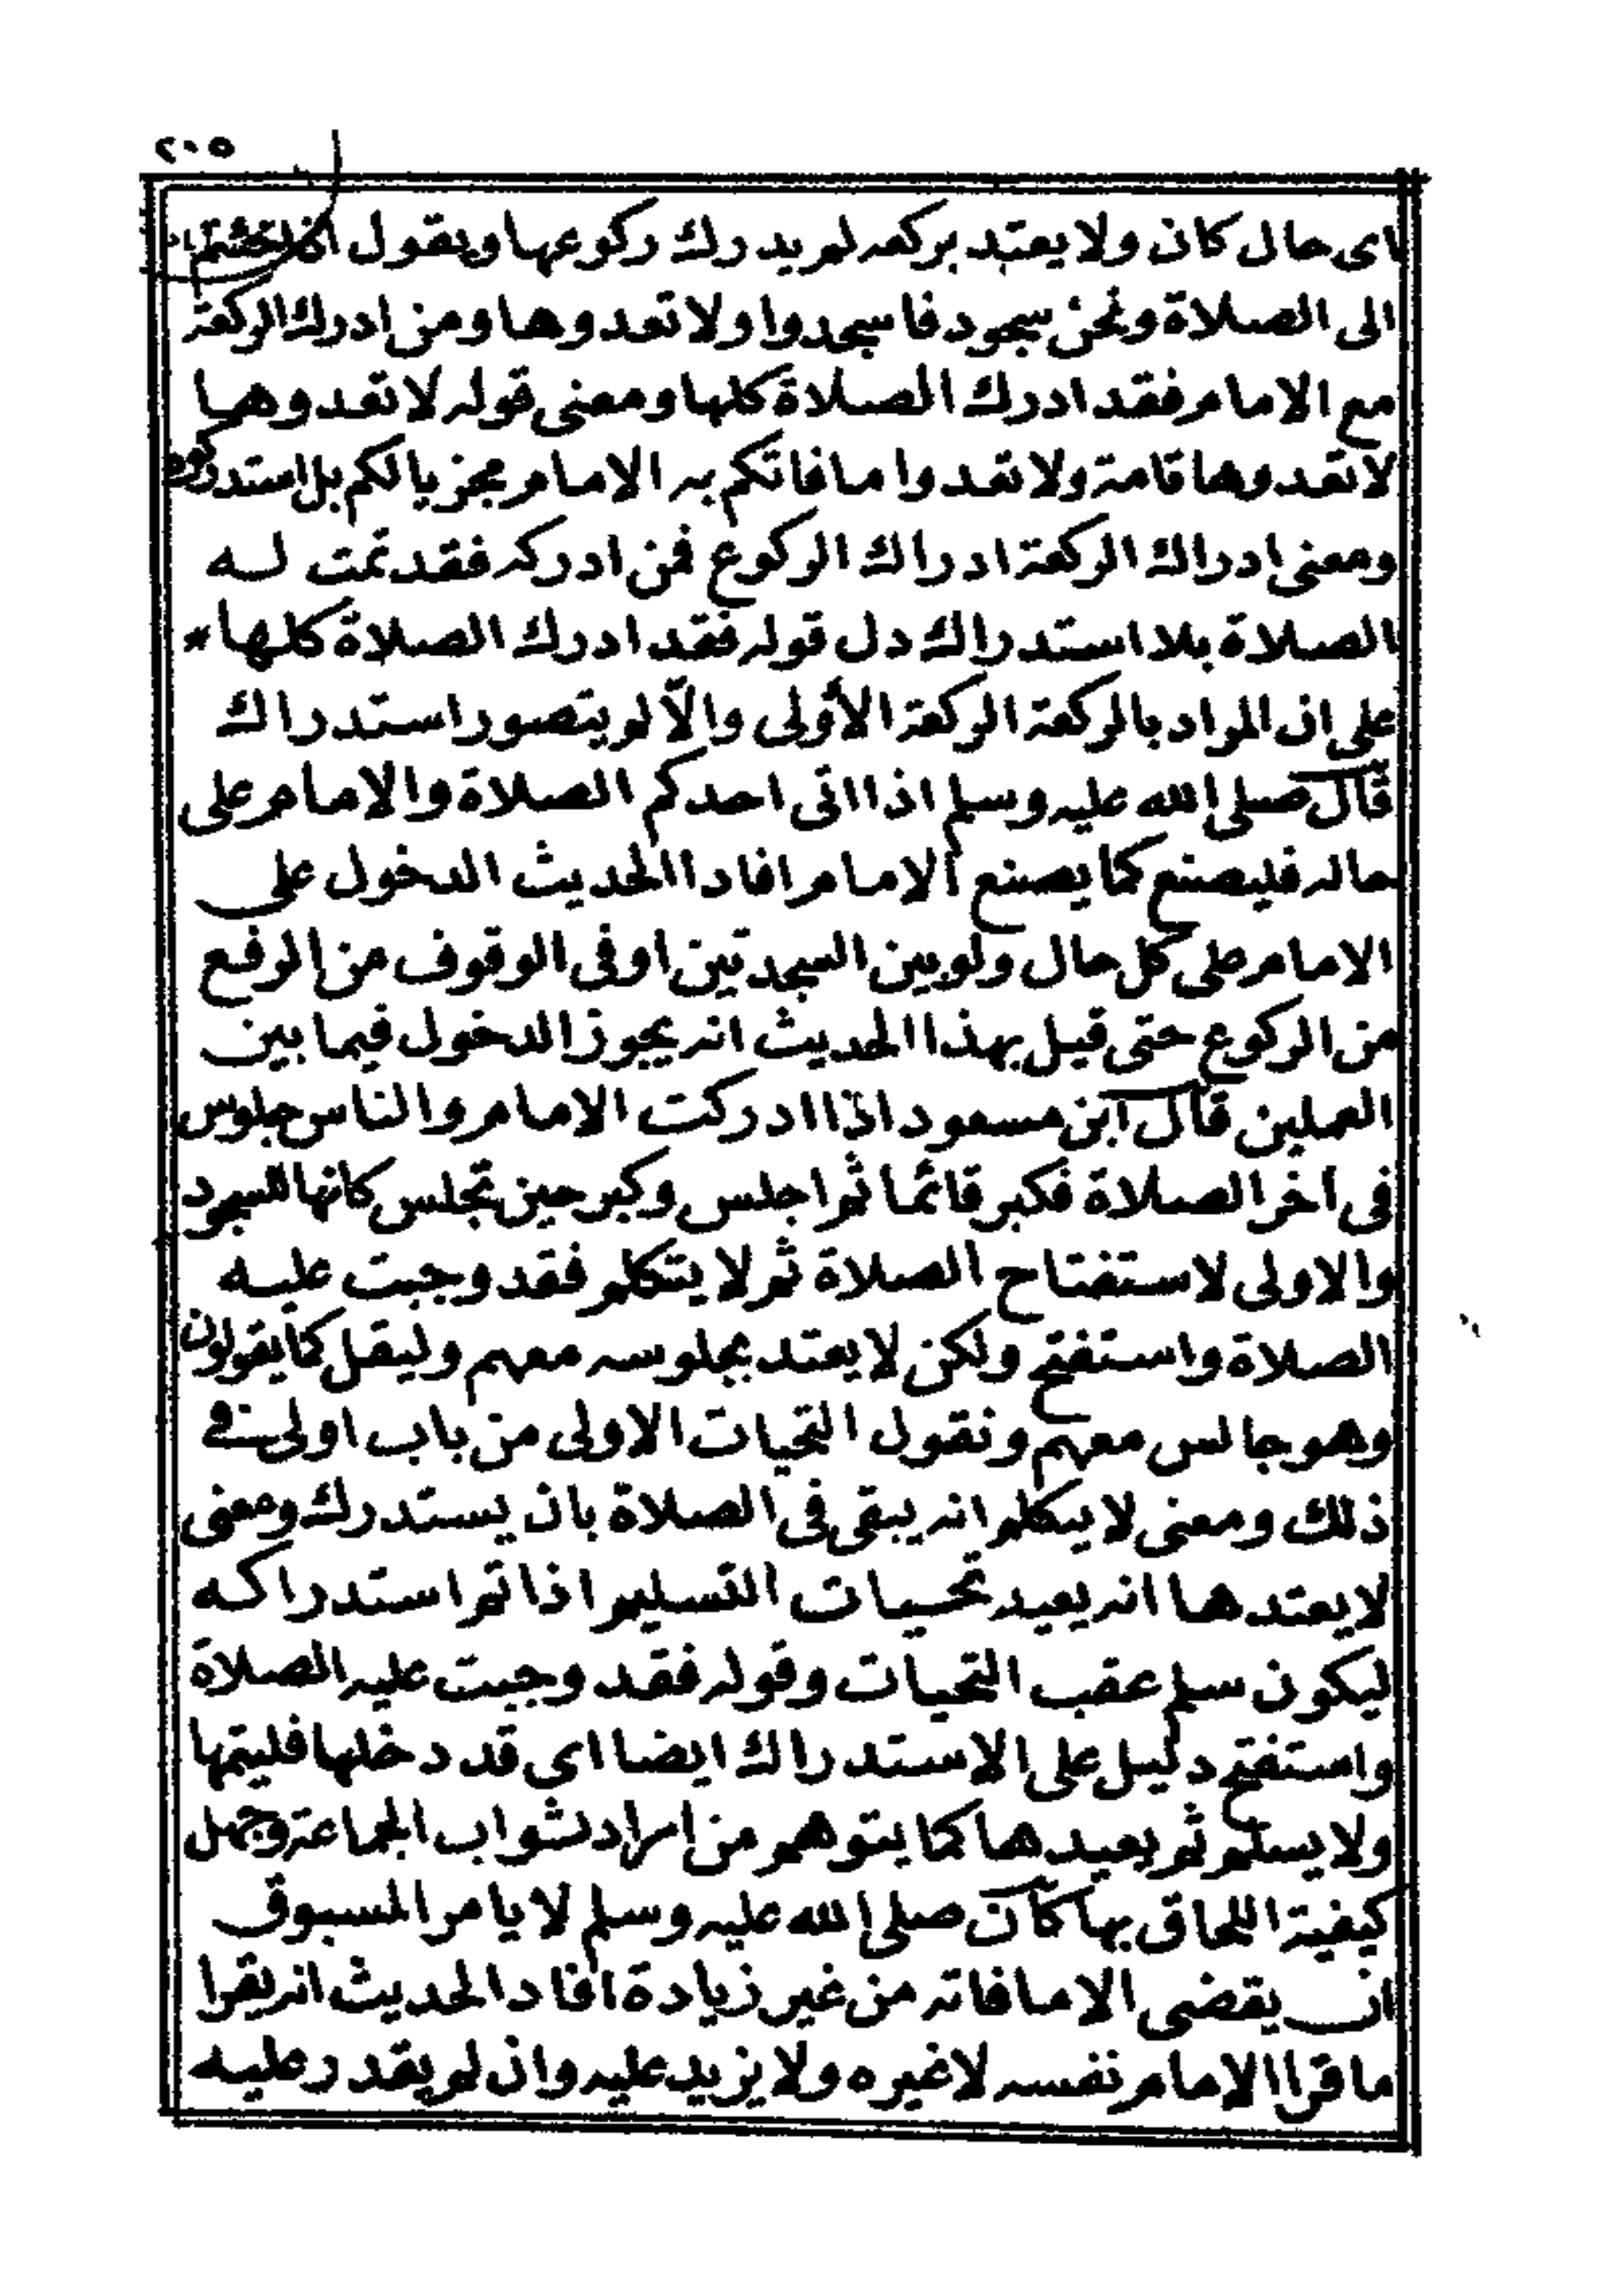 ٢٠٥
اى حال كان ولا يعتد بركعه لم يدرك ركوعها ويقول اذا جئتم
الى الصلاة ونحن سجود فاسجدوا ولا تعدوها ومن ادرك الركعة
مع الامام فقد ادرك الصلاة كلها ومعنى قوله لا تعدوها
لا تعدوها تامة ولا تعدوا ما فاتكم به الامام مجزيا لكم بل استدركوه
ومعنى ادراك الركعة ادراك الركوع فمن ادركه فقد تمت له
الصلاة بلا استدراك دل قوله فقد ادرك الصلاة كلها *
على ان المراد بالركعة الركعة الأولى والّا لم يتصور استدراك
قال صلى الله عليه وسلم اذا اتى احدكم الصلاة والامام على
حاله فليصنع كما يصنع الامام افادا الحديث الدخول على
الامام على كل حال ولو بين السجدتين او فى الوقوف من الرفع
من الركوع حتى قيل بهذا الحديث انه يجوز الدخول فيما بين
العملين قال ابن مسعود اذا ادركت الامام والناس جلوس
فى اخر الصلاة فكبر قائما ثم اجلس وكبر حين تجلس كانها للسجود
والاولى لاستفتاح الصلاة ثم لا يتكلم فقد وجبت عليه
الصلاة واستفتح ولكن لا يعتد بجلوسه معهم وليقل كما يقولون
وهو جالس معهم ونقول التحيات الاولى من باب اولى فى
ذلك ومعنى لا يتكلم انه يبقى فى الصلاة بان يستدرك ومعنى
لا يعتدها انه يعيد تحيات التسليم اذا تم استدراكه
ليكون سلم عقب التحيات وقوله فقد وجبت عليه الصلاة
واستفتح دليل على الاستدراك ايضا اى قد دخلها فليتمها
ولا يسلم ثم يعيدها كما يتوهم من اراد ثواب الجماعة وجهل
كيفية اللحاق بها كان صلى الله عليه وسلم لا يامر المسبوق
ان يقضى الا ما فاته من غير زيادة افاد الحديث انه يقرا
ما قرا الامام نفسه لا غيره ولا يزيد عليه وان لم يقدر عليه